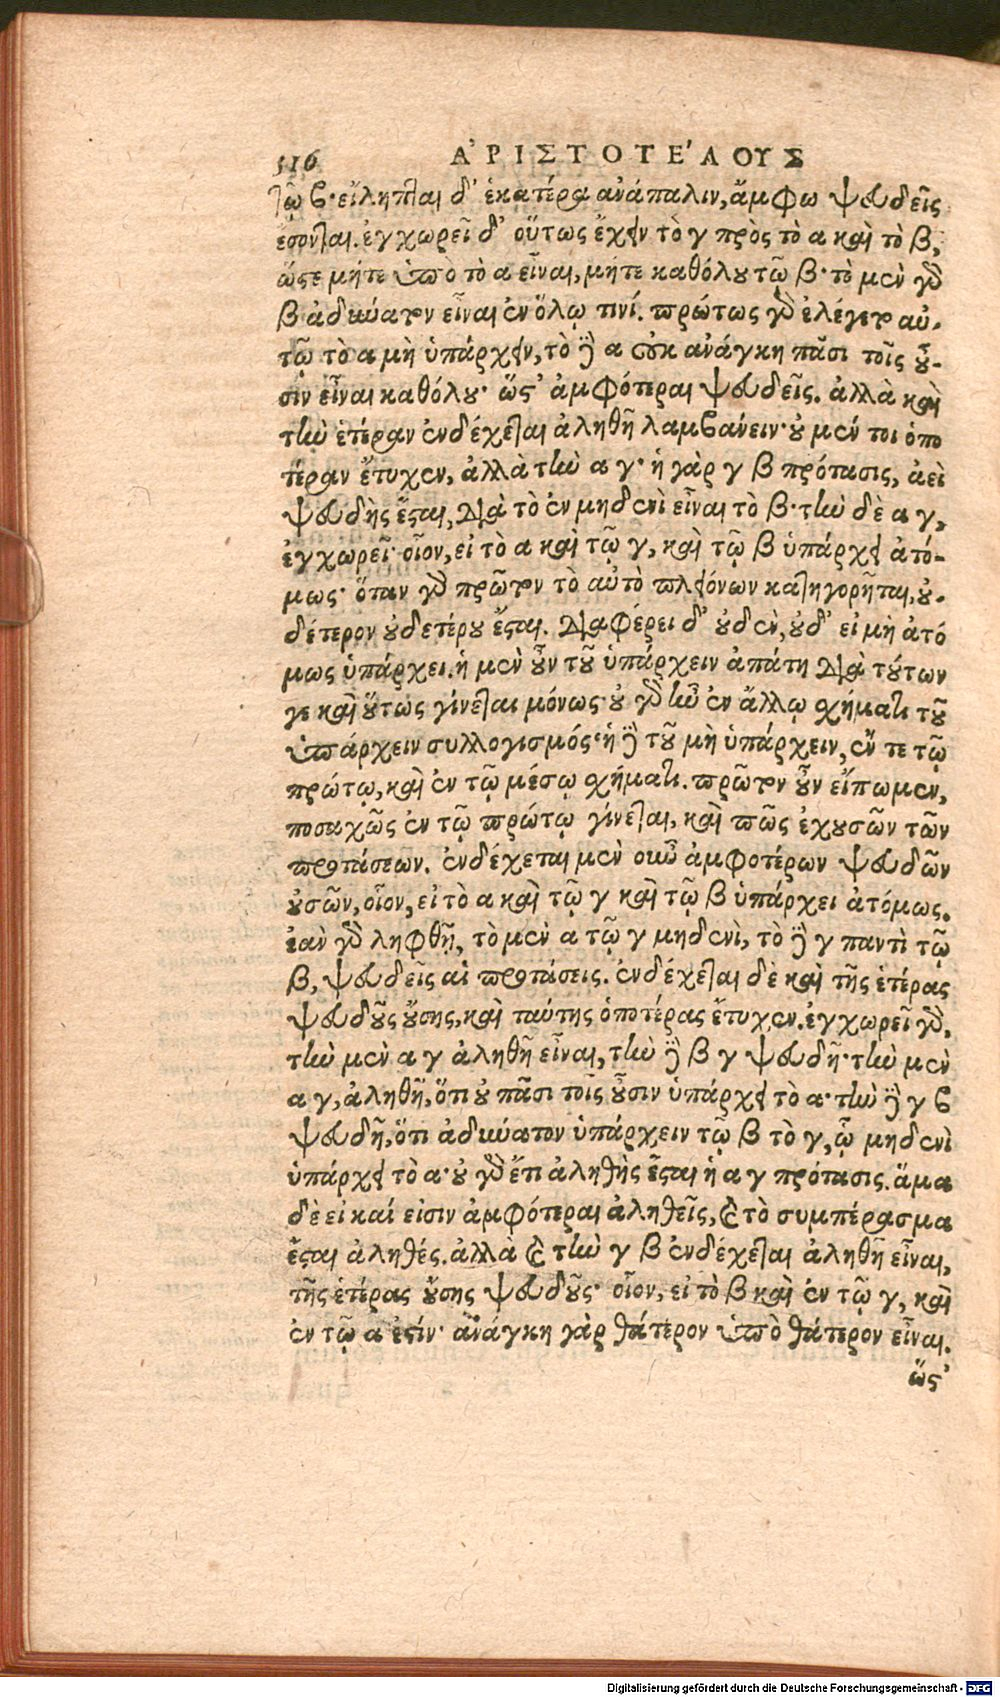 516 ἈΡΙΣΤΟΤΕ'ΛΟΥΣ
τῷ β· εἴληπται δ' ἑκατέρα ἀνάπαλιν, ἄμφω ψευδεῖς
ἔσονται. ἐγχωρεῖ δ' οὕτως ἔχειν τὸ γ πρὸς τὸ α καὶ τὸ β,
ὥστε μήτε ὑπὸ τὸ α εἶναι, μήτε καθόλου τῷ β· τὸ μὲν γὰρ
β ἀδύνατον εἶναι ἐν ὅλῳ τινί. πρώτως γὰρ ἐλέγετο αὐ-
τῷ τὸ α μὴ ὑπάρχειν, τὸ δὲ α οὐκ ἀνάγκη πᾶσι τοῖς οὖ-
σιν εἶναι καθόλου· ὥστ' ἀμφότεραι ψευδεῖς. ἀλλὰ καὶ
τὴν ἑτέραν ἐνδέχεται ἀληθῆ λαμβάνειν· οὐ μέν τοι ὁπο
τέραν ἔτυχεν, ἀλλὰ τὴν α γ· ἡ γὰρ γ β πρότασις, ἀεὶ
ψευδὴς ἔσται, διὰ τὸ ἐν μηδενὶ εἶναι τὸ β· τὴν δὲ α γ,
ἐγχωρεῖ· οἷον, εἰ τὸ α καὶ τῷ γ, καὶ τῷ β ὑπάρχει ἀτό-
μως· ὅταν γὰρ πρῶτον τὸ αὐτὸ πλειόνων κατηγορῆται, οὐ-
δέτερον οὐδετέρου ἔσται. διαφέρει δ' οὐδὲν, οὐδ' εἰ μὴ ἀτό
μως ὑπάρχει. ἡ μὲν οὖν τοῦ ὑπάρχειν ἀπάτη διὰ τούτων
γε καὶ οὕτως γίνεται μόνως· οὐ γὰρ ἦν ἐν ἄλλῳ σχήματι τοῦ
ὑπάρχειν συλλογισμός· ἡ δὲ τοῦ μὴ ὑπάρχειν, ἔν τε τῷ
πρώτῳ, καὶ ἐν τῷ μέσῳ σχήματι. πρῶτον οὖν εἴπωμεν,
ποσαχῶς ἐν τῷ πρώτῳ γίνεται, καὶ πῶς ἐχουσῶν τῶν
προτάσεων. ἐνδέχεται μὲν οὖν ἀμφοτέρων ψευδῶν
οὐσῶν, οἷον, εἰ τὸ α καὶ τῷ γ καὶ τῷ β ὑπάρχει ἀτόμως.
ἐὰν γὰρ ληφθῇ, τὸ μὲν α τῷ γ μηδενὶ, τὸ δὲ γ παντὶ τῷ
β, ψευδεῖς αἱ προτάσεις. ἐνδέχεται δὲ καὶ τῆς ἑτέρας
ψευδοῦς οὔσης, καὶ ταύτης ὁποτέρας ἔτυχεν. ἐγχωρεῖ γὰρ,
τὴν μὲν α γ ἀληθῆ εἶναι, τὴν δὲ β γ ψευδῆ· τὴν μὲν
α γ, ἀληθῆ, ὅτι οὐ πᾶσι τοῖς οὖσιν ὑπάρχει τὸ α· τὴν δὲ γ β
ψευδῆ, ὅτι ἀδύνατον ὑπάρχειν τῷ β τὸ γ, ᾧ μηδενὶ
ὑπάρχει τὸ α· οὐ γὰρ ἔτι ἀληθὴς ἔσται ἡ α γ πρότασις. ἅμα
δὲ εἰ καί εἰσιν ἀμφότεραι ἀληθεῖς, καὶ τὸ συμπέρασμα
ἔσται ἀληθές. ἀλλὰ καὶ τὴν γ β ἐνδέχεται ἀληθῆ εἶναι,
τῆς ἑτέρας οὔσης ψευδοῦς· οἷον, εἰ τὸ β καὶ ἐν τῷ γ, καὶ
ἐν τῷ α ἐστίν· ἀνάγκη γὰρ θάτερον ὑπὸ θάτερον εἶναι.
ὥστ'
Digitalisierung gefördert durch die Deutsche Forschungsgemeinschaft - DFG